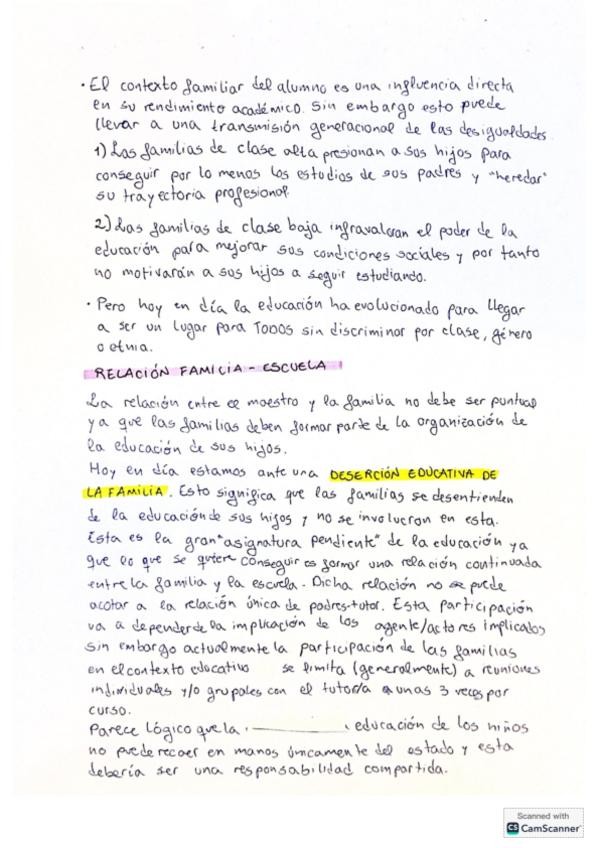 · El contexto familiar del alumno es una influencia directa
en su rendimiento académico. Sin embargo esto puede
llevar a una transmisión generacional de las desigualdades
1) Las familias de clase alta presionan a sus hijos para
conseguir por lo menos los estudios de sus padres y "heredar"
su trayectoria profesional.
2) Las familias de clase baja infravaloran el poder de la
educación para mejorar sus condiciones sociales y por tanto
no motivarán a sus hijos a seguir estudiando.
· Pero hoy en día la educación ha evolucionado para llegar
a ser un lugar para TODOS sin discriminar por clase, género
o etnia.
RELACIÓN FAMILIA - ESCUELA
La relación entre el maestro y la familia no debe ser puntual
ya que las familias deben formar parte de la organización de
la educación de sus hijos.
Hoy en día estamos ante una DESERCIÓN EDUCATIVA DE
LA FAMILIA. Esto significa que las familias se desentienden
de la educación de sus hijos y no se involucran en esta.
Esta es la gran "asignatura pendiente" de la educación ya
que lo que se quiere conseguir es formar una relación continuada
entre la familia y la escuela. Dicha relación no se puede
acotar a la relación única de padres-tutor. Esta participación
va a depender de la implicación de los agente/actores implicados
Sin embargo actualmente la participación de las familias
en el contexto educativo se limita (generalmente) a reuniones
individuales y/o grupales con el tutor/a a unas 3 veces por
curso.
Parece lógico que la educación de los niños
no puede recaer en manos únicamente del estado y esta
debería ser una responsabilidad compartida.
Scanned with
CS CamScanner